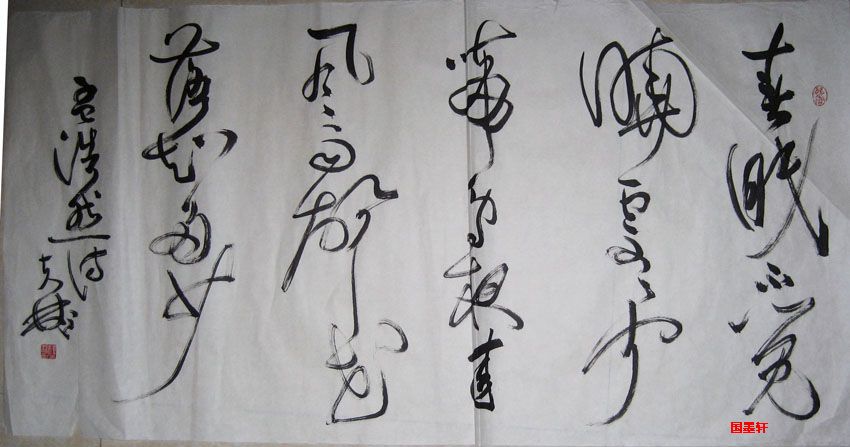 春眠不觉
曉處處闻
啼鸟夜来
风雨聲花
落知多少
孟浩然诗
国墨轩